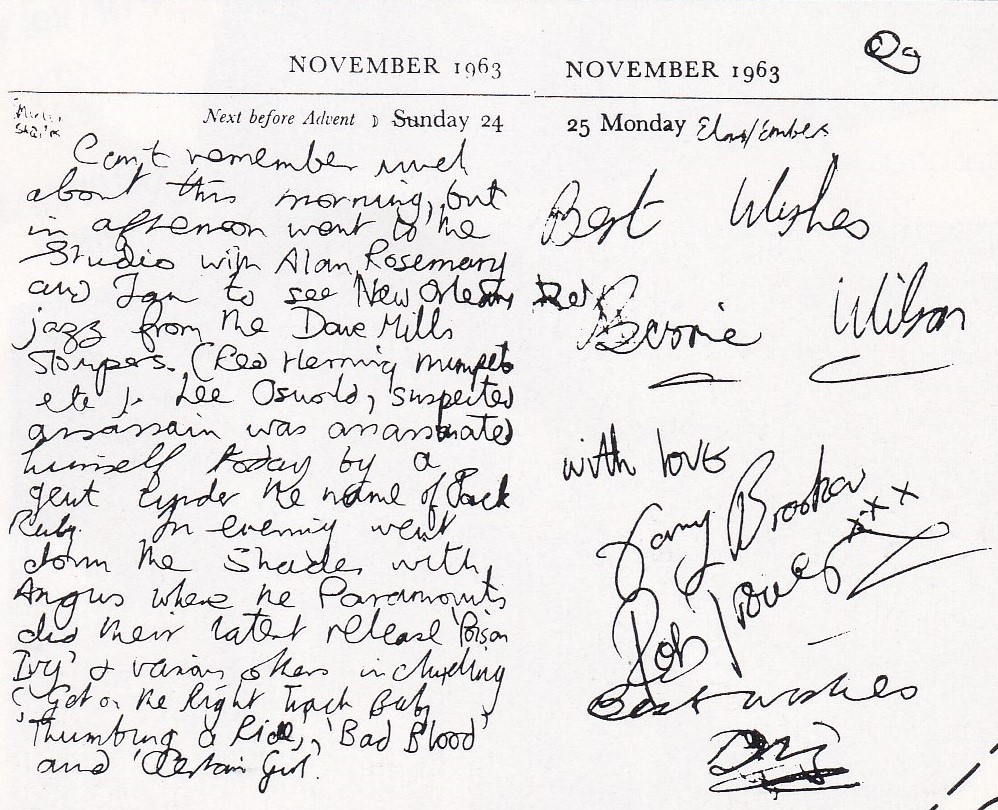 NOVEMBER 1963
Next before Advent Sunday 24
Can't remember much
about this morning, but
in afternoon went to the
Studio with Alan, Rosemary
and Jan to see New Orleans
jazz from the Dave Mills
Stompers. (Leo Herring trumpet
etc). Lee Oswald, suspected
assassain was assassinated
himself today by a
gent under the name of Jack
Ruby. In evening went
down the Shades with
Angus where the Paramounts
did their latest release 'Poison
Ivy' & various others including
'Get on the Right Track Baby
'Thumbing a Ride,, 'Bad Blood'
and 'Certain Girl'.
NOVEMBER 1963
25 Monday
Best Wishes
Bernie Wilson
with love
Gary Brooker
Rob Trower xxx
Best wishes